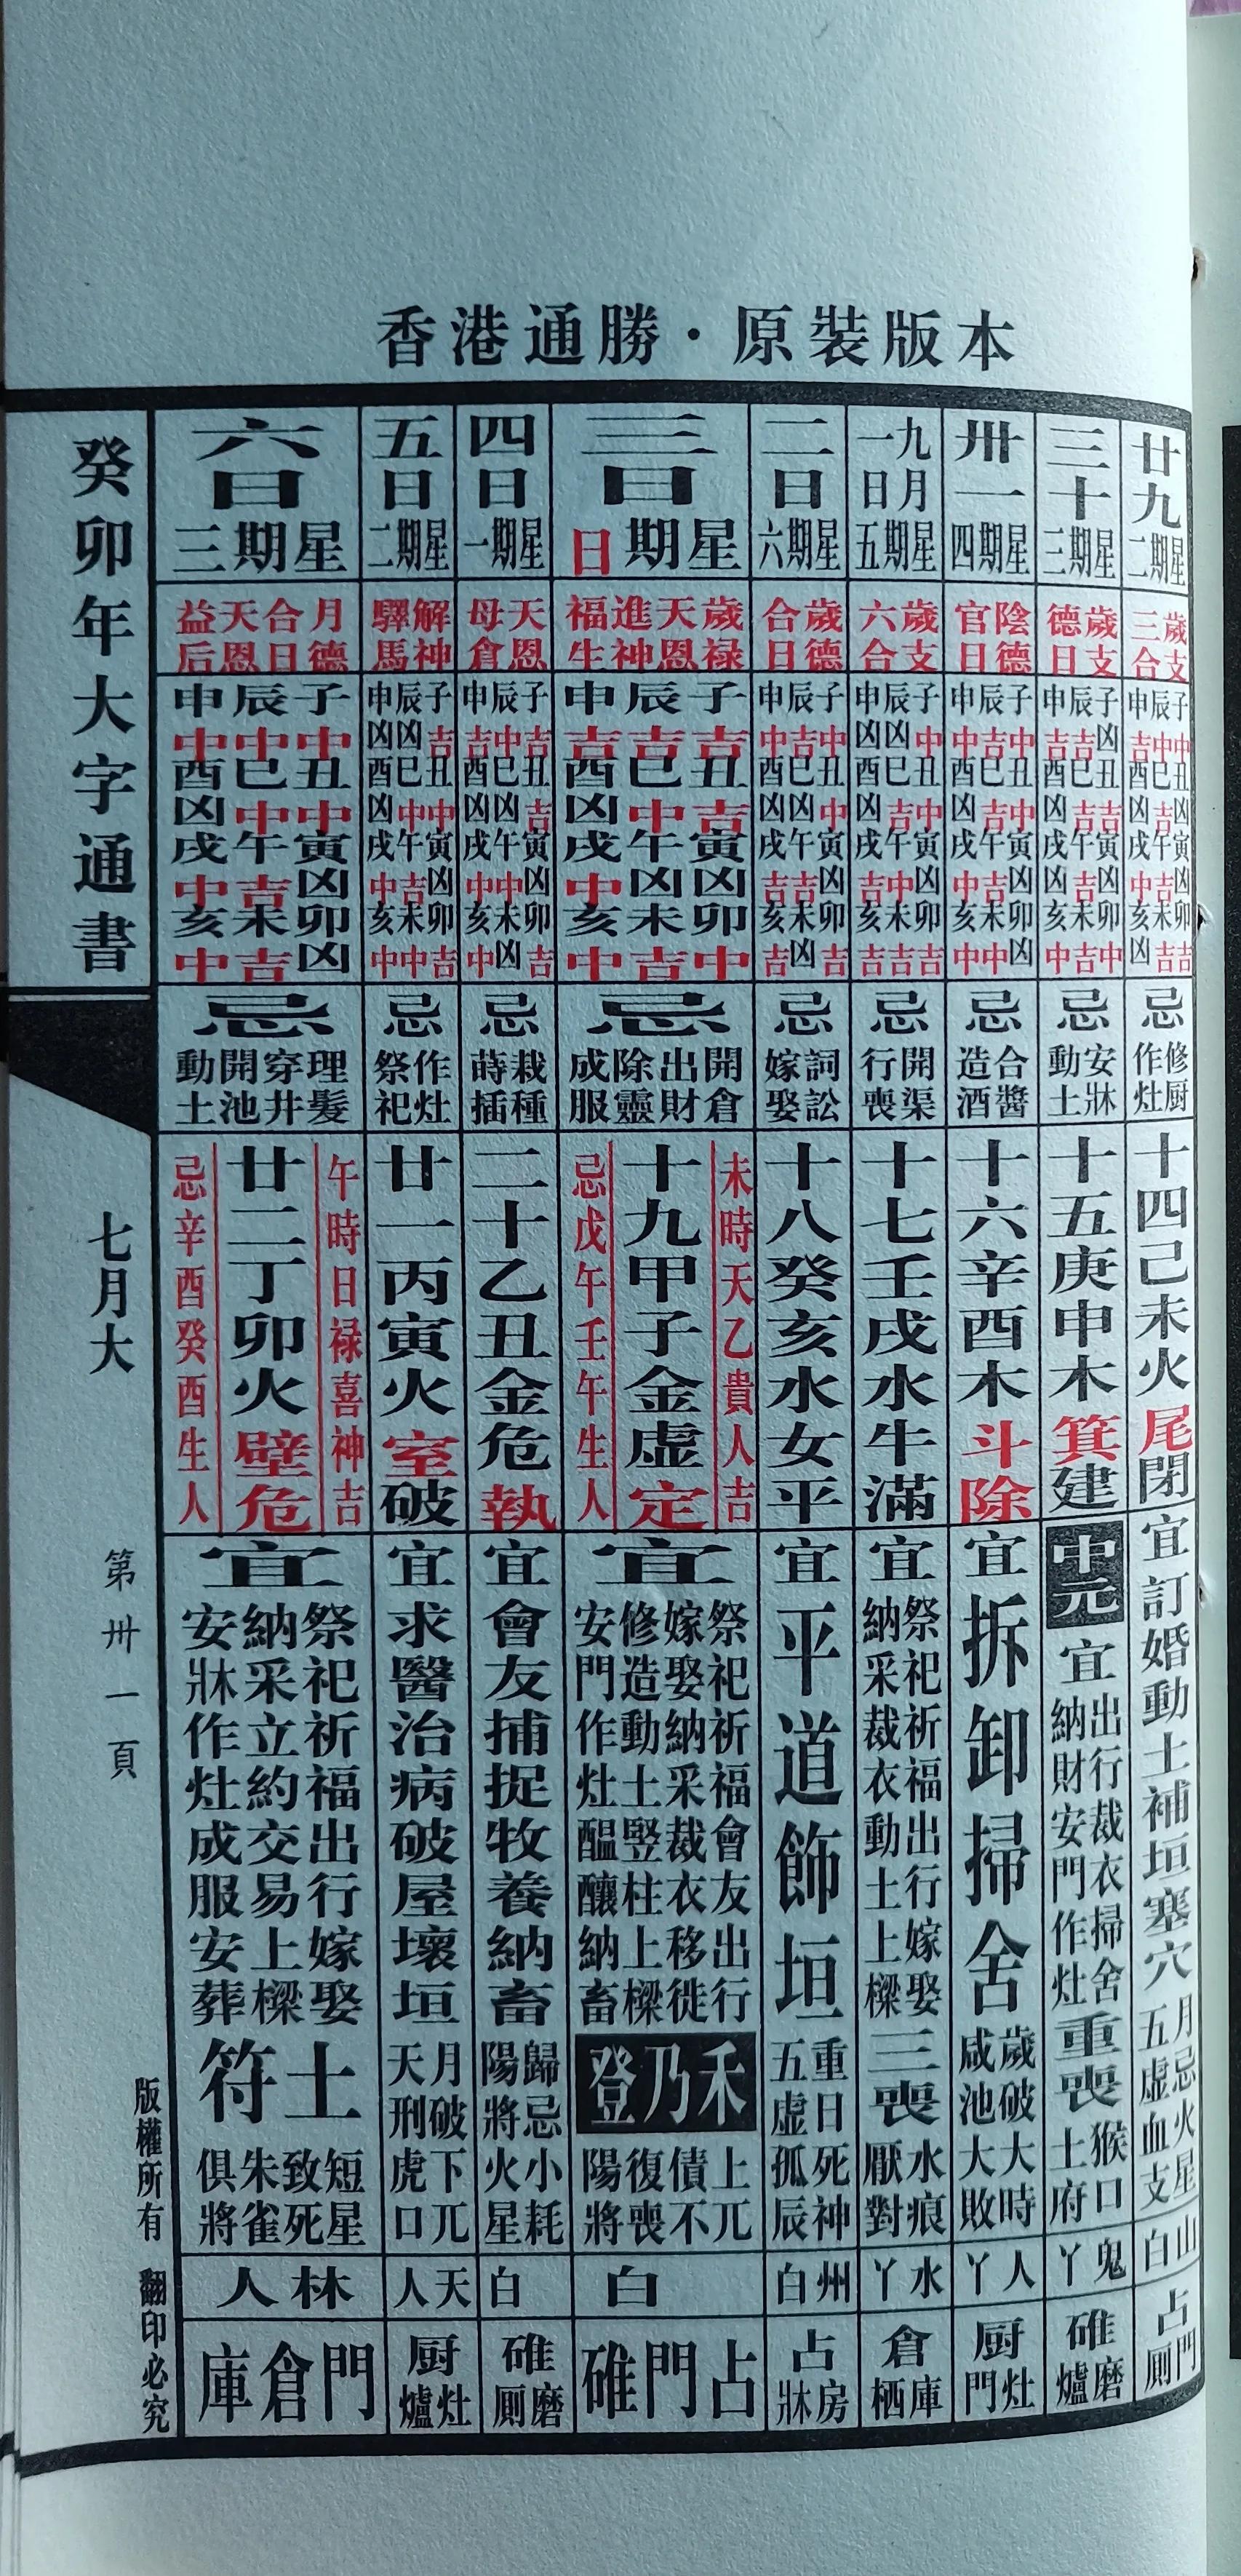 香港通勝・原裝版本
廿九
星期二
歲支三合
子中 丑凶 寅凶 卯吉
辰中 巳吉 午吉 未吉
申吉 酉凶 戌中 亥凶
忌
修厨
作灶
十四己未火尾閉
宜
訂婚動土補垣塞穴
月忌火星
五虛血支
山白
占門厠
三十
星期三
歲支德日
子凶 丑吉 寅凶 卯中
辰吉 巳吉 午吉 未吉
申吉 酉凶 戌凶 亥中
忌
安牀
動土
十五庚申木箕建
中元
宜
出行裁衣掃舍
納財安門作灶
重喪
猴口
土府
鬼丫
碓磨爐
卅一
星期四
陰德官日
子中 丑中 寅凶 卯凶
辰吉 巳吉 午吉 未中
申中 酉凶 戌中 亥中
忌
合醬
造酒
十六辛酉木斗除
宜
拆卸掃舍
歲破大時
咸池大敗
人丫
厨灶門
九月一日
星期五
歲支六合
子中 丑中 寅凶 卯吉
辰凶 巳吉 午中 未吉
申凶 酉凶 戌吉 亥吉
忌
開渠
行喪
十七壬戌水牛滿
宜
祭祀祈福出行嫁娶
納采裁衣動土上樑
三喪
水痕
厭對
水丫
倉庫栖
二日
星期六
歲德合日
子中 丑中 寅凶 卯吉
辰吉 巳凶 午吉 未凶
申中 酉凶 戌吉 亥吉
忌
詞訟
嫁娶
十八癸亥水女平
宜
平道飾垣
重日死神
五虛孤辰
州白
占房牀
三日
星期日
歲祿 天恩 進神 福生
子吉 丑吉 寅凶 卯中
辰吉 巳中 午凶 未吉
申吉 酉凶 戌中 亥中
忌
開倉
出財
除靈
成服
未時天乙貴人吉
十九甲子金虛定
忌戊午壬午生人
宜
祭祀祈福會友出行
嫁娶納采裁衣移徙
修造動土竪柱上樑
安門作灶醞釀納畜
禾乃登
上兀
債不
復喪
陽將
白
占門碓
四日
星期一
天恩母倉
子吉 丑吉 寅凶 卯吉
辰中 巳凶 午中 未凶
申吉 酉凶 戌中 亥中
忌
栽種
蒔插
二十乙丑金危執
宜
會友捕捉牧養納畜
歸忌小耗
陽將火星
白
碓磨厠
五日
星期二
解神驛馬
子吉 丑中 寅凶 卯吉
辰凶 巳中 午吉 未中
申凶 酉凶 戌中 亥中
忌
作灶
祭祀
廿一丙寅火室破
宜
求醫治病破屋壞垣
月破下兀
天刑虎口
天人
厨灶爐
六日
星期三
月德合日天恩益后
子中 丑中 寅凶 卯凶
辰中 巳中 午吉 未吉
申中 酉凶 戌中 亥中
忌
理髮
穿井
開池
動土
午時日祿喜神吉
廿二丁卯火壁危
忌辛酉癸酉生人
宜
祭祀祈福出行嫁娶
納采立約交易上樑
安牀作灶成服安葬
土符
短星
致死
朱雀
俱將
林人
門倉庫
癸卯年大字通書
七月大
第卅一頁
版權所有 翻印必究